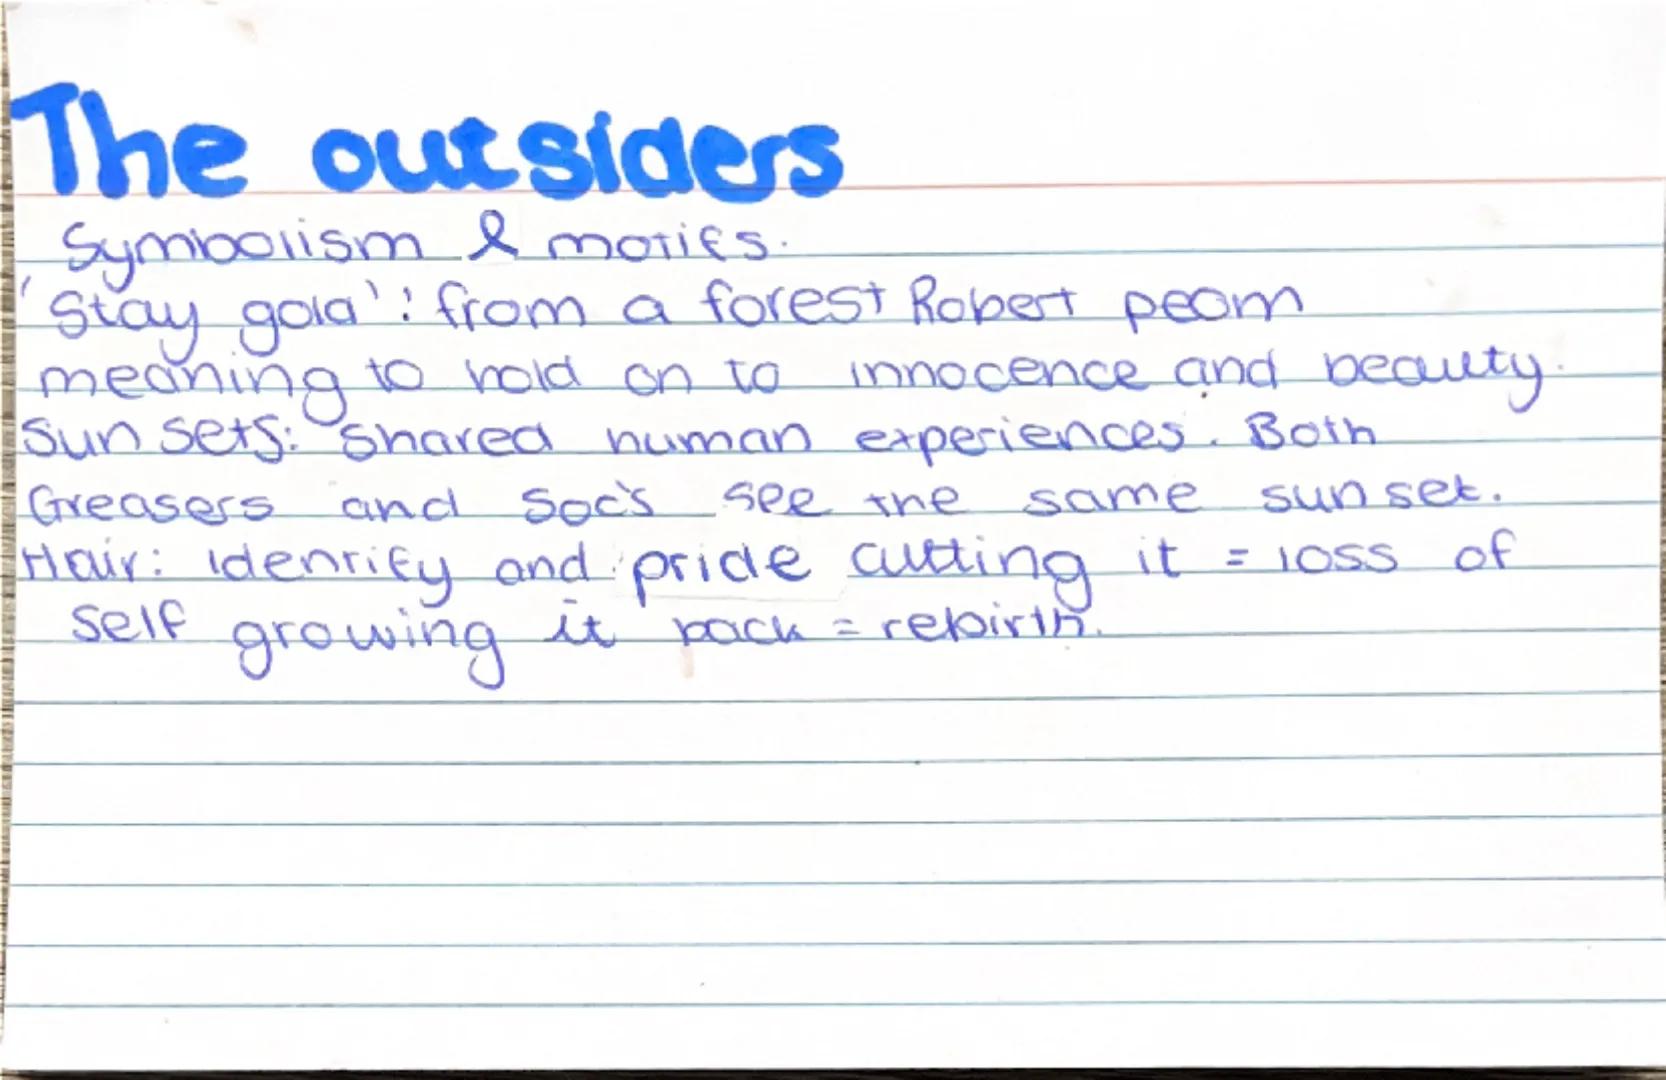 The outsiders
Symbolism & motifs.
'Stay gold': from a forest Robert peom
meaning to hold on to innocence and beauty.
Sun sets: shared human experiences. Both
Greasers and Soc's see the same sun set.
Hair: identify and pride cutting it = loss of
self growing it back = rebirth.